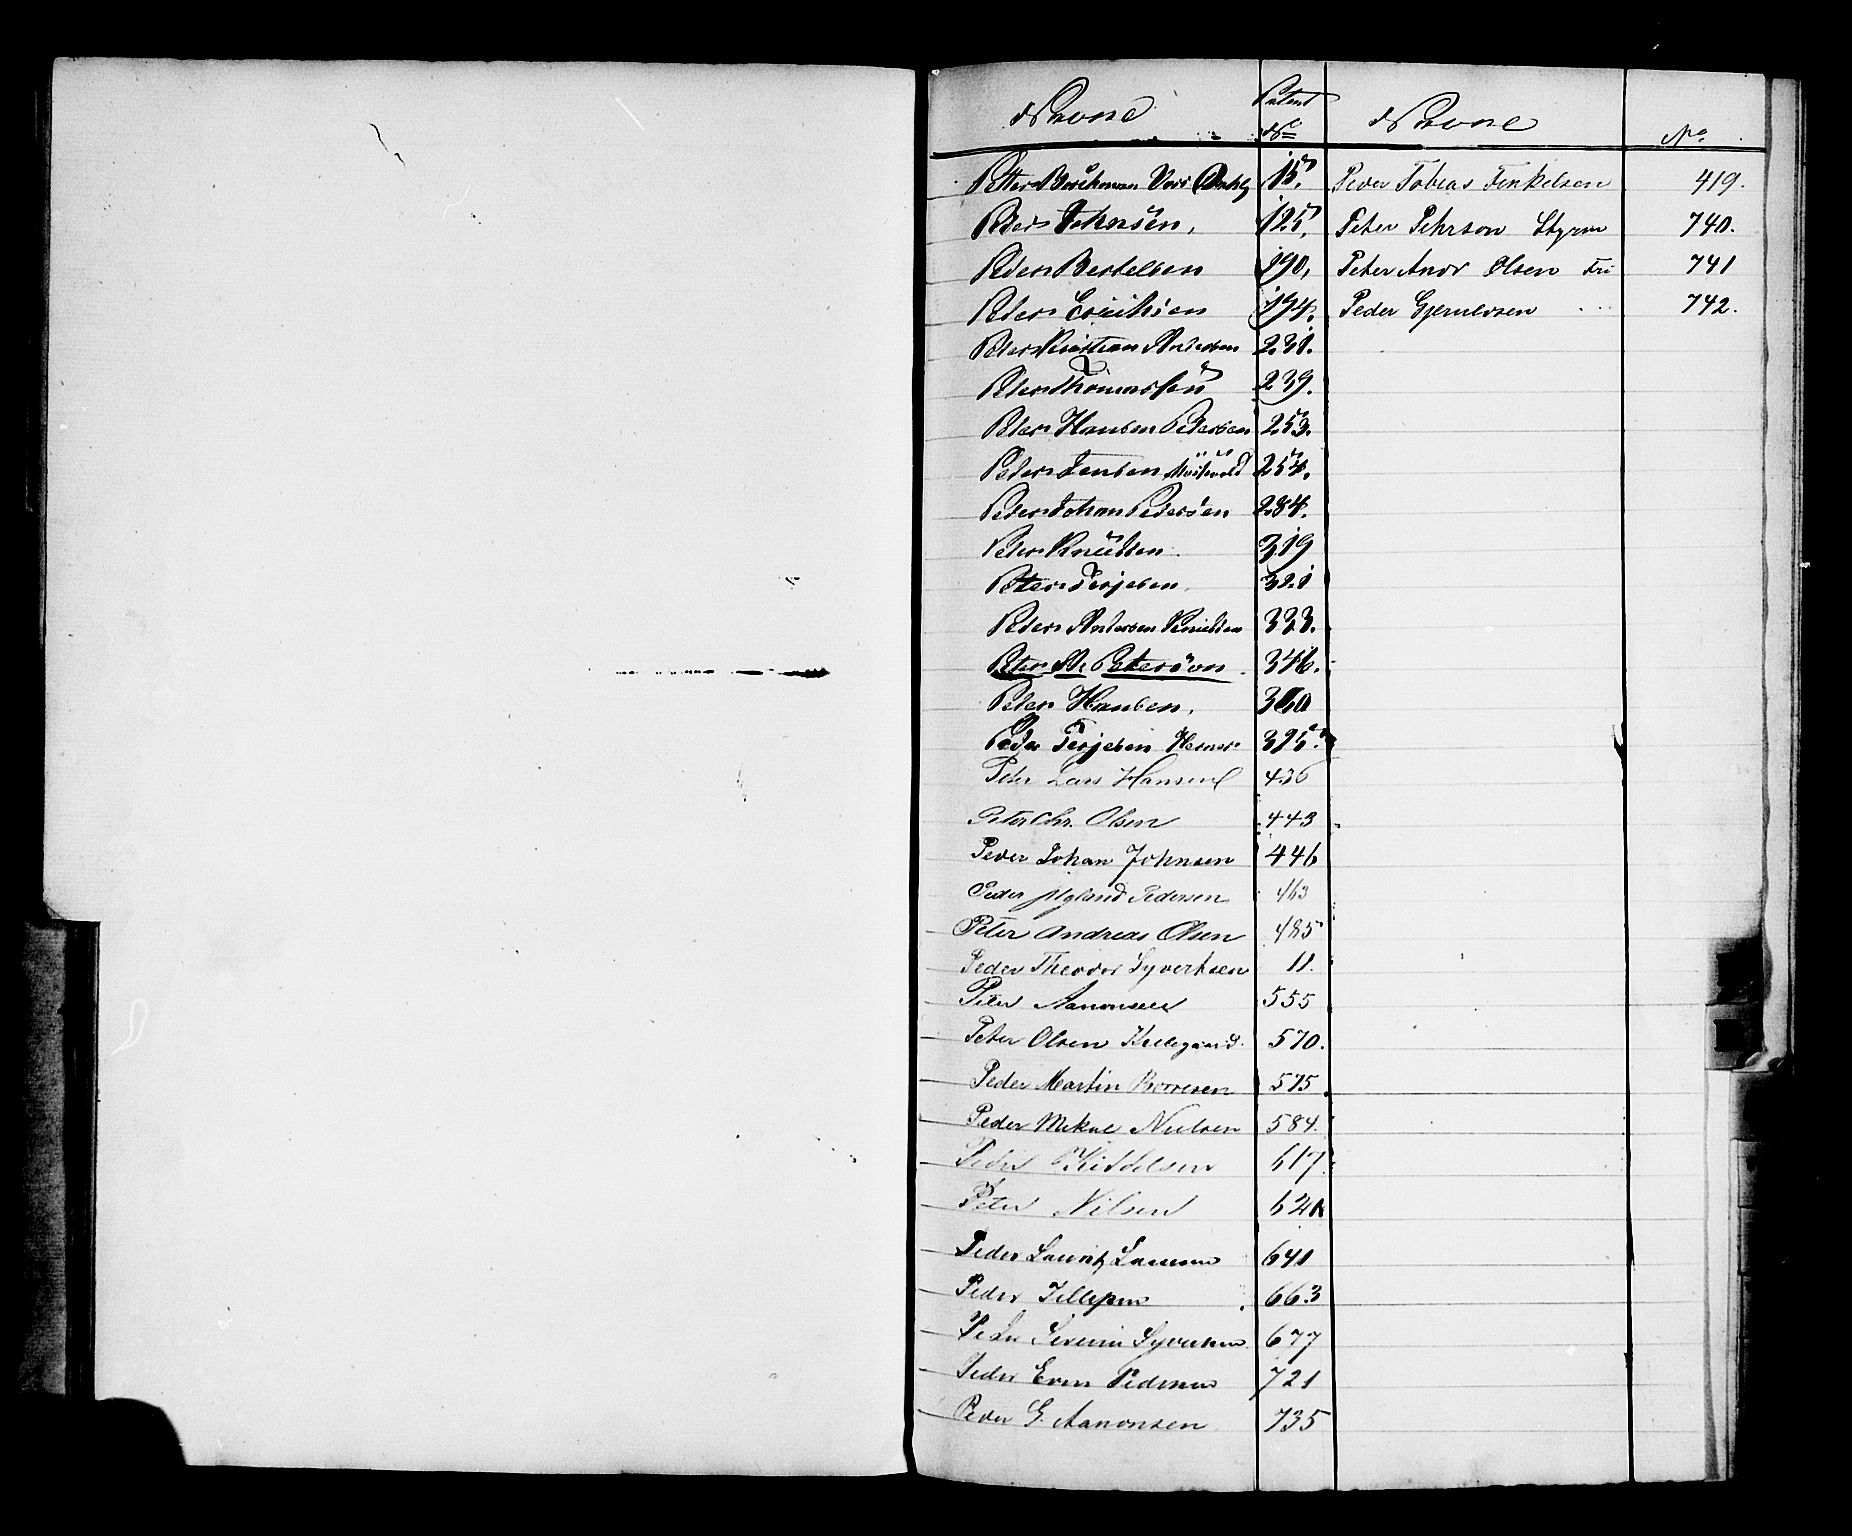 Navne Patent No
Petter 15.
Peder Johnsen, 125.
Peder Bertelsen 190,
Peder Erichsen 194.
Peter Kristian Andersen 231.
Peter Thomassen 239.
Peter Hansen Petersen 253.
Peter Jensen 254.
Peder Johan Pedersen 284.
Peter Knudsen 319
Peter Terjesen. 321
Peder Andersen Knudsen 333.
Peter M. Petersson 346.
Peter Hansen, 360
Peder Terjesen 395.
Peter Lars Hansen 436
Peter Chr. Olsen 443
Peder Johan Johnsen 446
Peder Myland Pedersen 463
Peter Andreas Olsen 485
Peder Theodor Syvertsen 11.
Peter Aanonsen 555
Peter Olsen 570.
Peder Martin Borresen 575.
Peder Mikal Nielsen 584.
Peder Kittelsen 617
Peter Nilsen
Peder Lauritz Larsen 641
Peder Tellefsen 663
Peder Severin Syvertsen 677
Peder Even Pedersen 721
Peder G. Aanonsen 735
Navne No.
Peder Tobias Tinkelsen 419.
Peter Pehrson Styrm 740.
Peter Andr Olsen Fri 741
Peder Gjerulvsen 742.